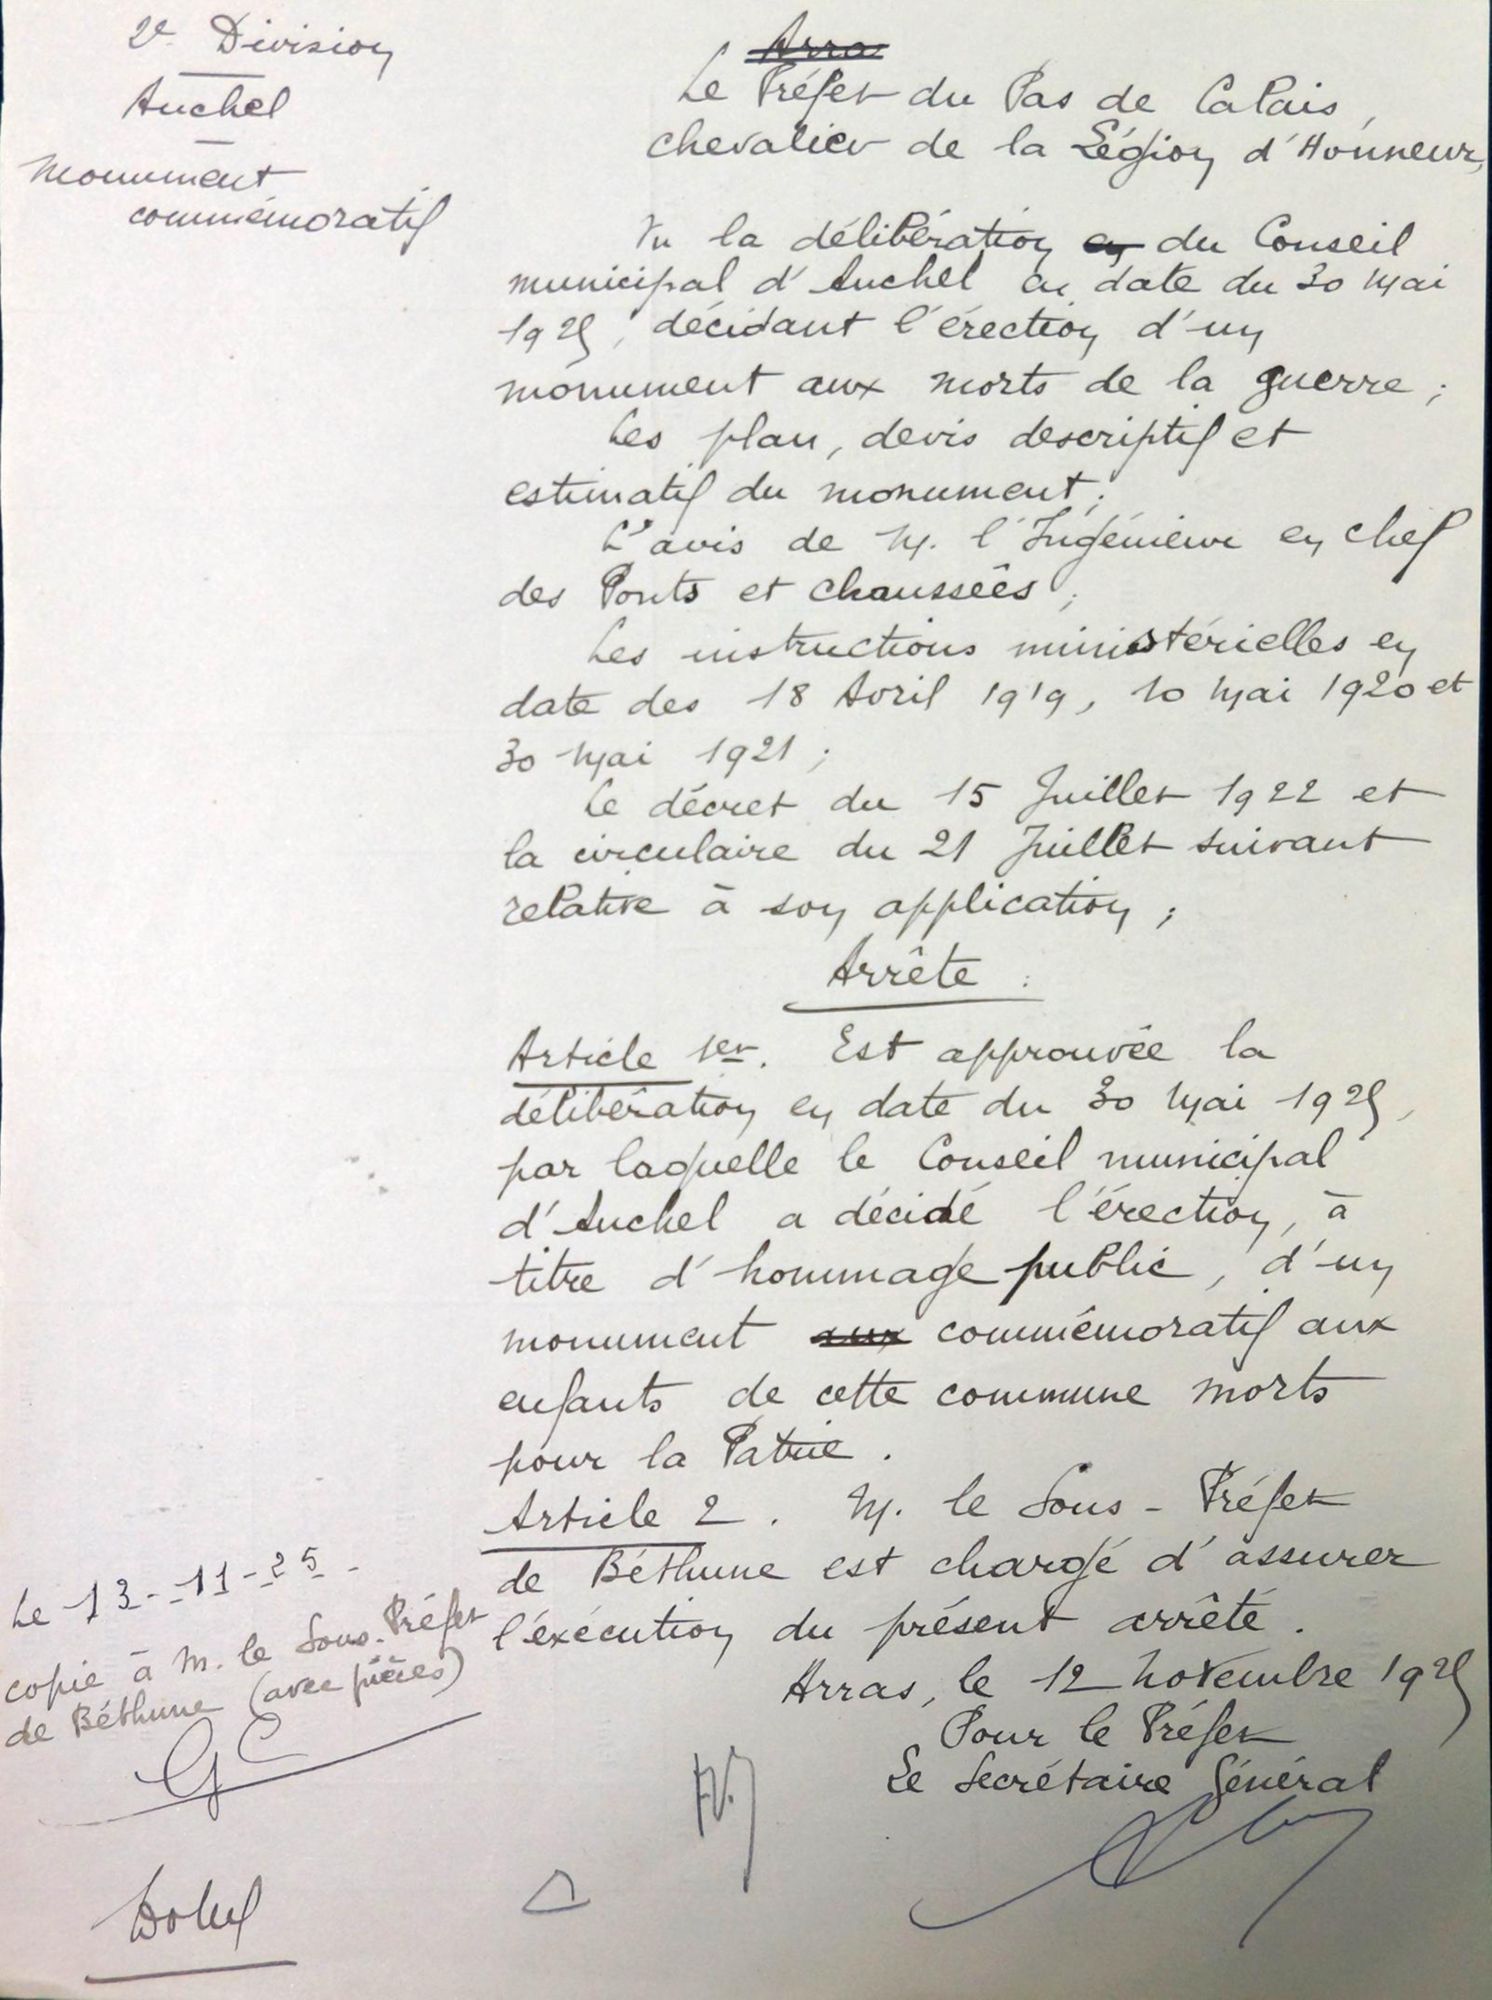 2e Division
Auchel
Monument
commémoratif
Arra
Le Préfet du Pas de Calais,
chevalier de la Légion d'Honneur,
Vu la délibération en du Conseil
municipal d'Auchel en date du 30 Mai
1925, décidant l'érection d'un
monument aux morts de la guerre ;
Les plan, devis descriptif et
estimatif du monument ;
L'avis de M. l'Ingénieur en chef
des Ponts et chaussées ;
Les instructions ministérielles en
date des 18 Avril 1919, 10 Mai 1920 et
30 Mai 1921 ;
Le décret du 15 Juillet 1922 et
la circulaire du 21 Juillet suivant
relative à son application ;
Arrête :
Article 1er. Est approuvée la
délibération en date du 30 Mai 1925,
par laquelle le Conseil municipal
d'Auchel a décidé l'érection, à
titre d'hommage public, d'un
monument aux commémoratif aux
enfants de cette commune morts
pour la Patrie.
Article 2. M. le Sous-Préfet
de Béthune est chargé d'assurer
l'exécution du présent arrêté.
Arras, le 12 Novembre 1925
Pour le Préfet
Le Secrétaire Général
Le 13-11-25.
copie à M. le Sous-Préfet
de Béthune (avec pièces)